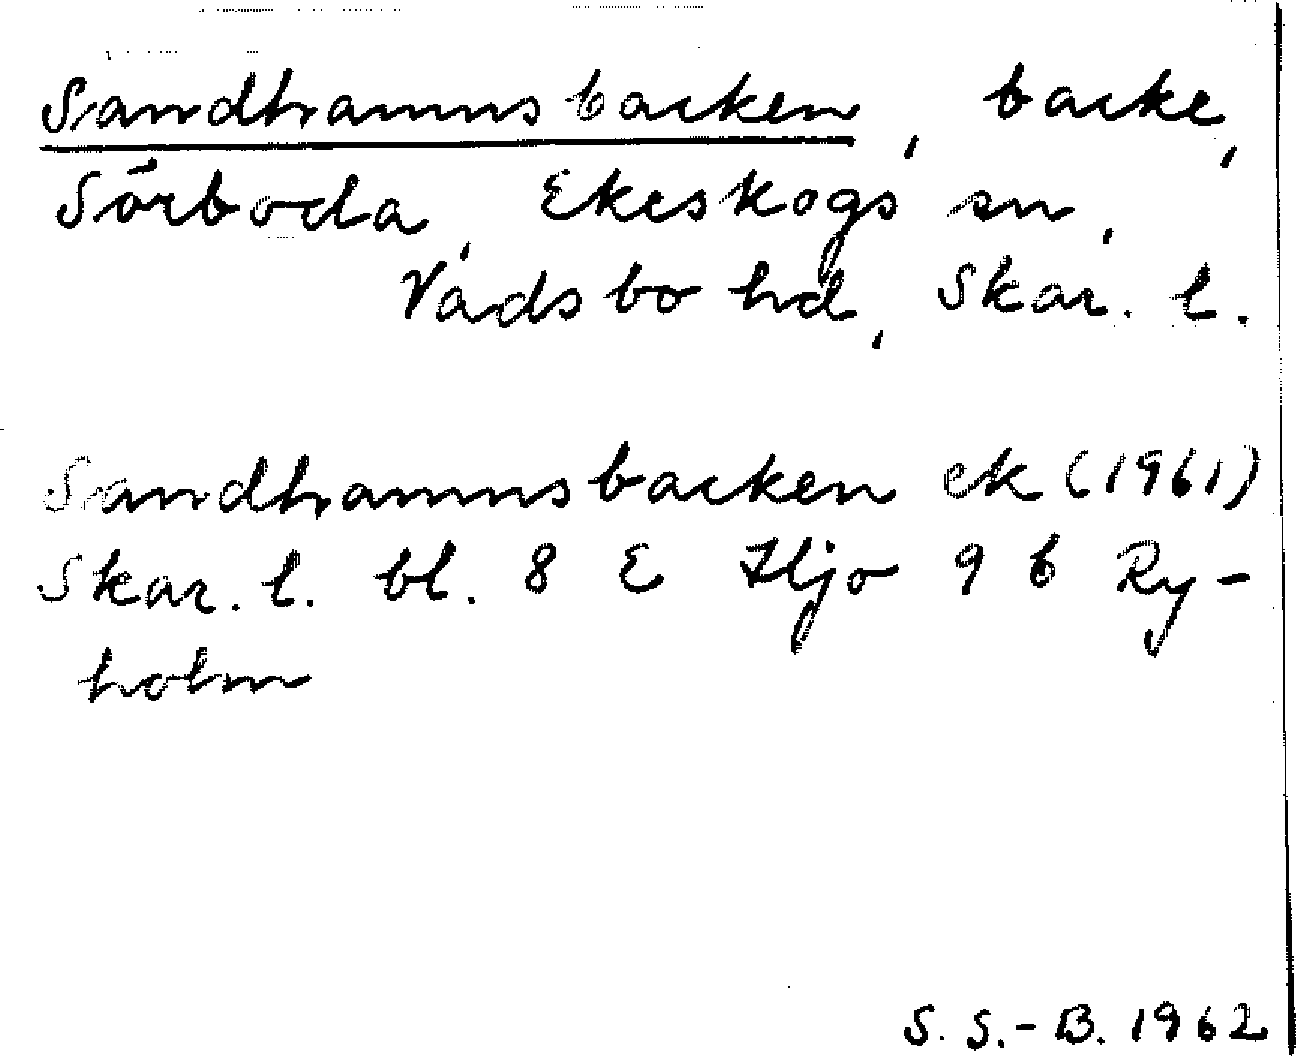 Sandhamnsbacken, backe,
Sörboda, Ekeskogs sn,
Vadsbo hd, Skar. l.
Sandhamnsbacken ek (1961)
Skar. l. bl. 8 E Hjo 9 b Ry-
holm
S. S.-B. 1962